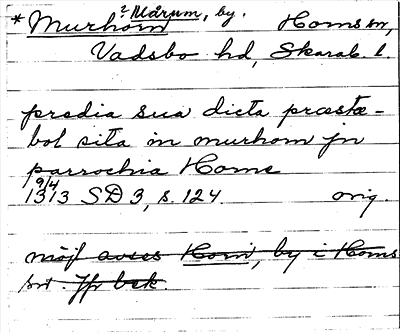 ? Mårum, by.
* Murhom Homs sn,
Vadsbo hd, Skarab. l.
predia sua dicta præstæ-
bol sita in murhom jn
parrochia Home
9/4
1313 SD 3, s. 124. orig.
möjl avses Horn, by i Homs
sn Jfr bek.